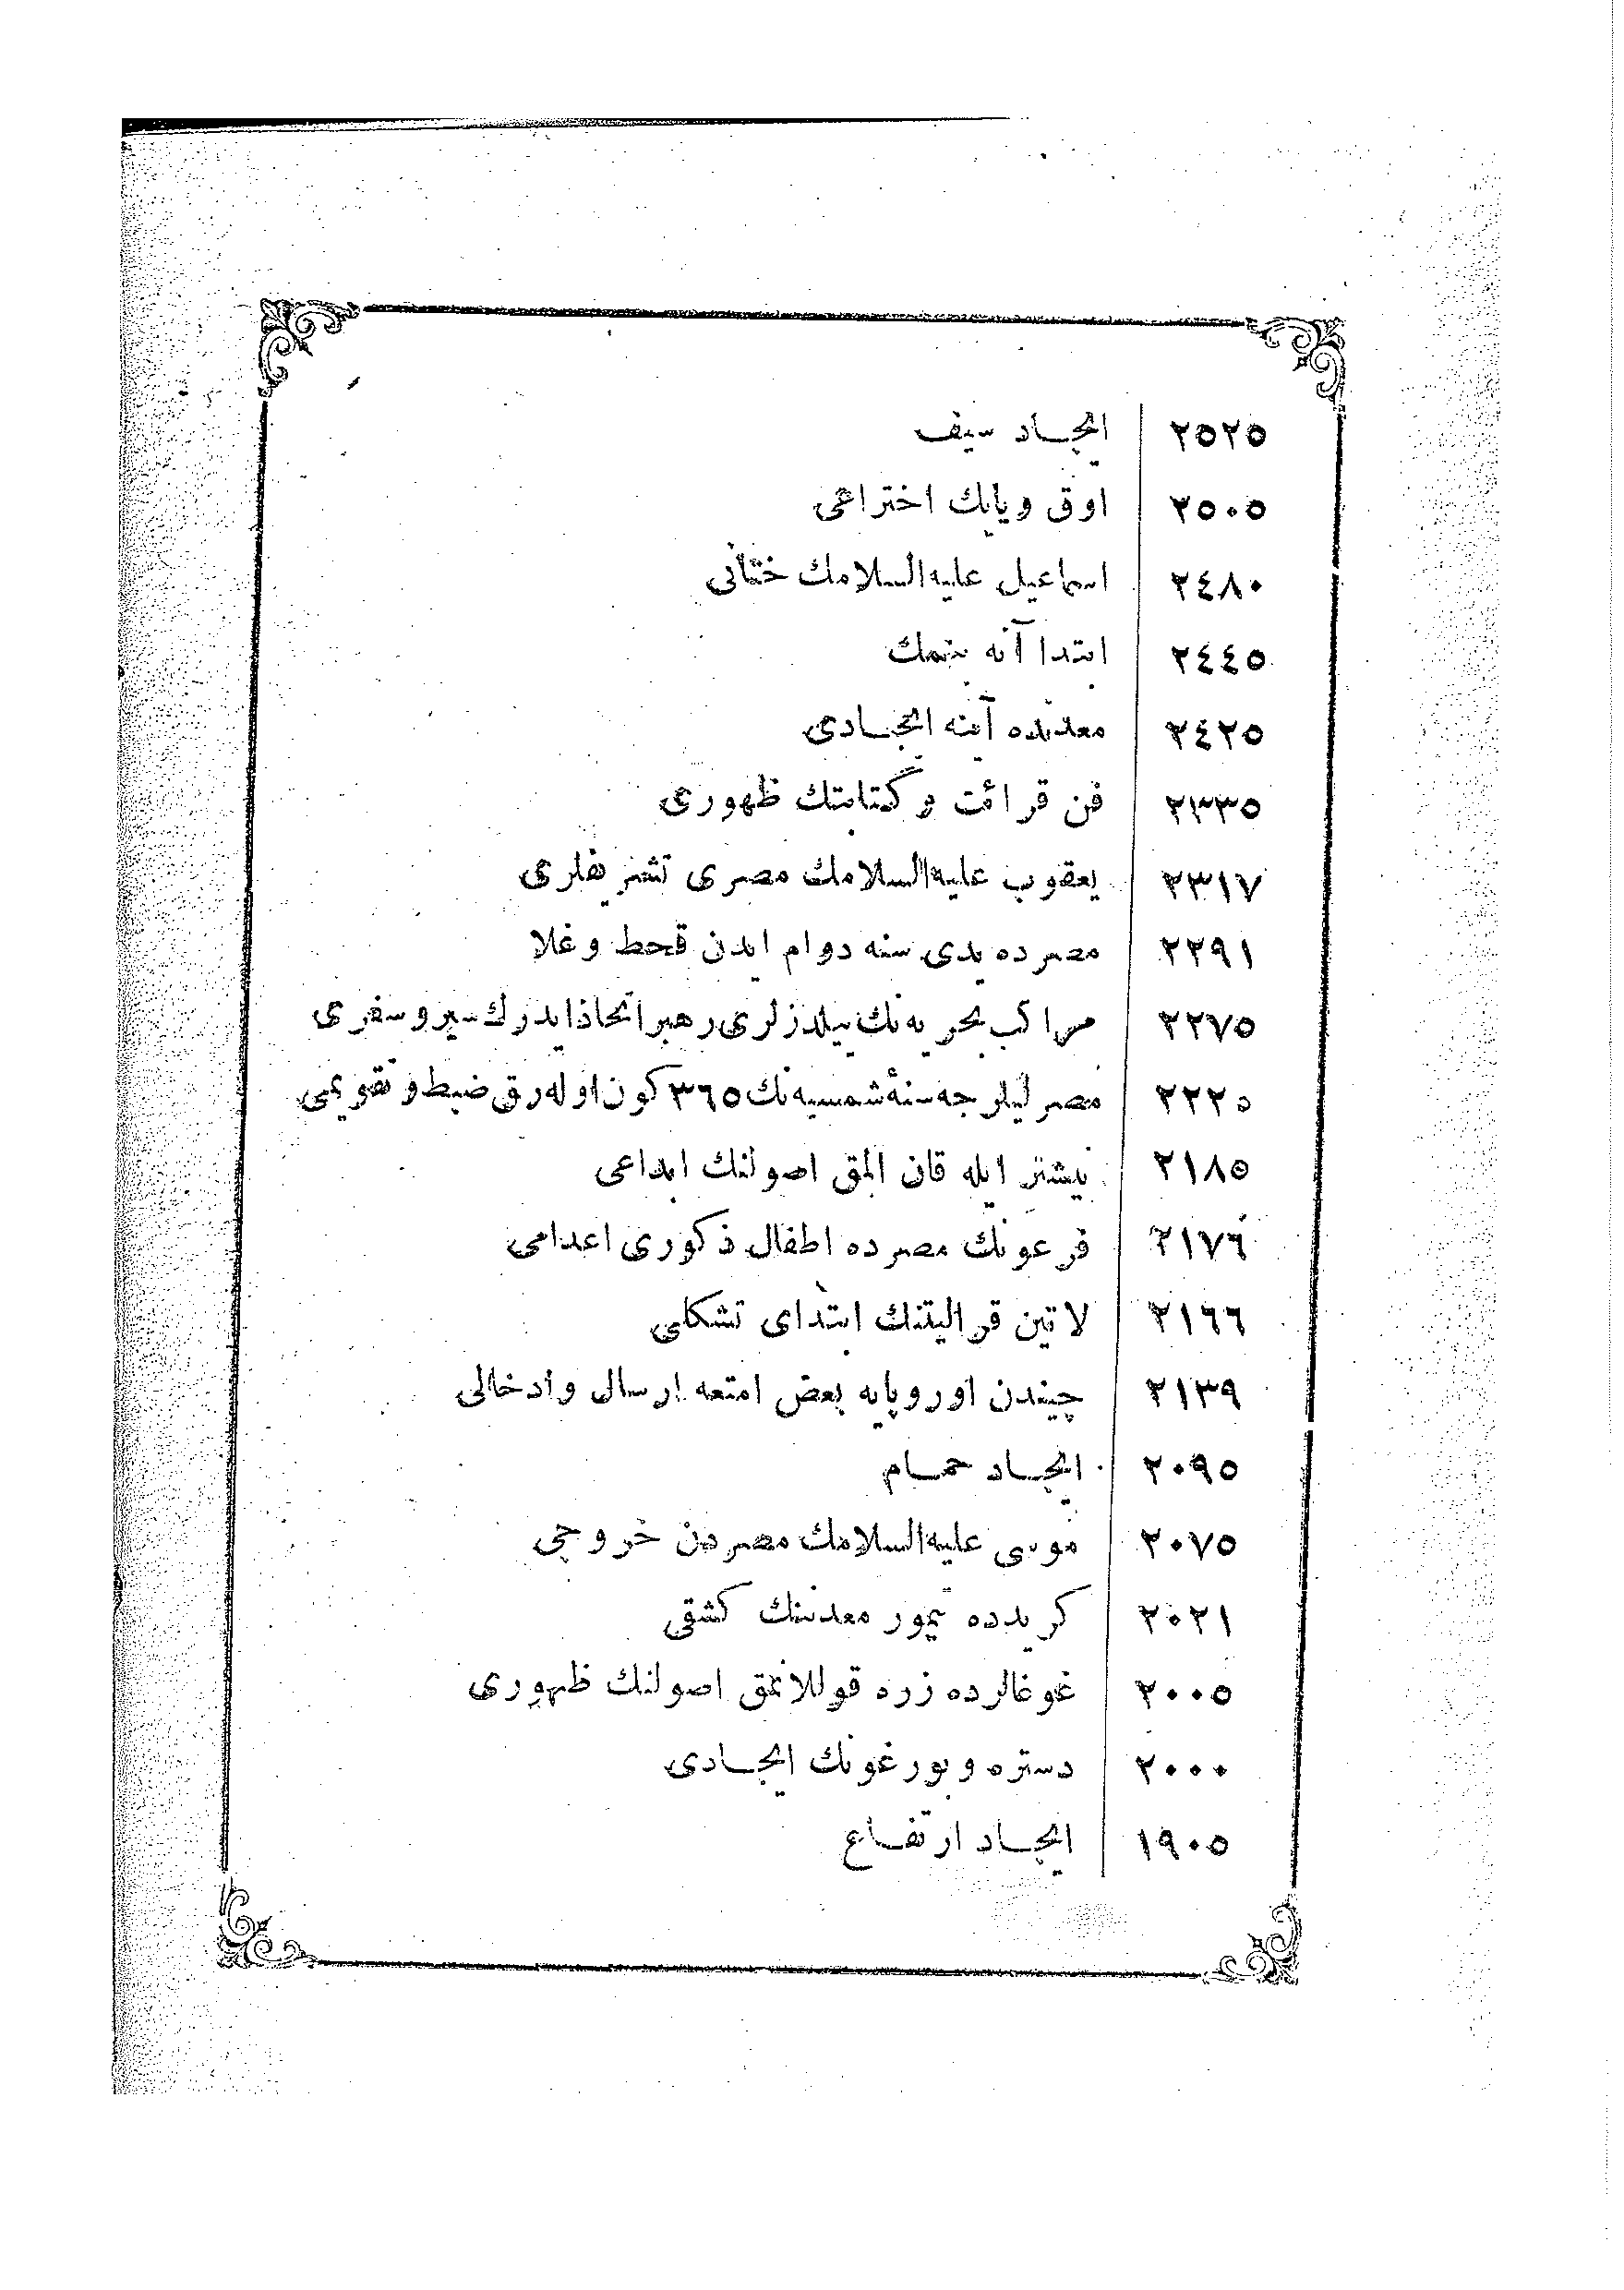 ٢٥٢٥ ایجاد سیف
٢٥٠٥ اوق ویایك اختراعی
٢٤٨٠ اسماعیل علیه‌السلامك ختانی
٢٤٤٥ ابتدا آته بنمك
٢٤٢٥ معدندن آینه ایجادی
٢٣٣٥ فن قرائت و كتابتك ظهوری
٢٣١٧ یعقوب علیه‌السلامك مصری تشریفلری
٢٢٩١ مصرده یدی سنه دوام ایدن قحط وغلا
٢٢٧٥ مراكب بحریه‌نك ییلدزلری رهبر اتخاذ ایدرك سیر و سفری
٢٢٢٥ مصرلیلرجه سنهٔ شمسیه‌نك ٣٦٥ كون اوله‌رق ضبط و تقویمی
٢١٨٥ نیشتر ایله قان المق اصولنك ابداعی
٢١٧٦ فرعونك مصرده اطفال ذكوری اعدامی
٢١٦٦ لاتین قرالیتنك ابتدای تشكلی
٢١٣٩ چیندن اوروپایه بعض امتعه ارسال وادخالی
٢٠٩٥ ایجاد حمام
٢٠٧٥ موسی علیه‌السلامك مصردن خروجی
٢٠٢١ كریدده تیمور معدننك كشفی
٢٠٠٥ غوغالرده زره قوللانمق اصولنك ظهوری
٢٠٠٠ دستره و بورغونك ایجادی
١٩٠٥ ایجاد ارتفاع